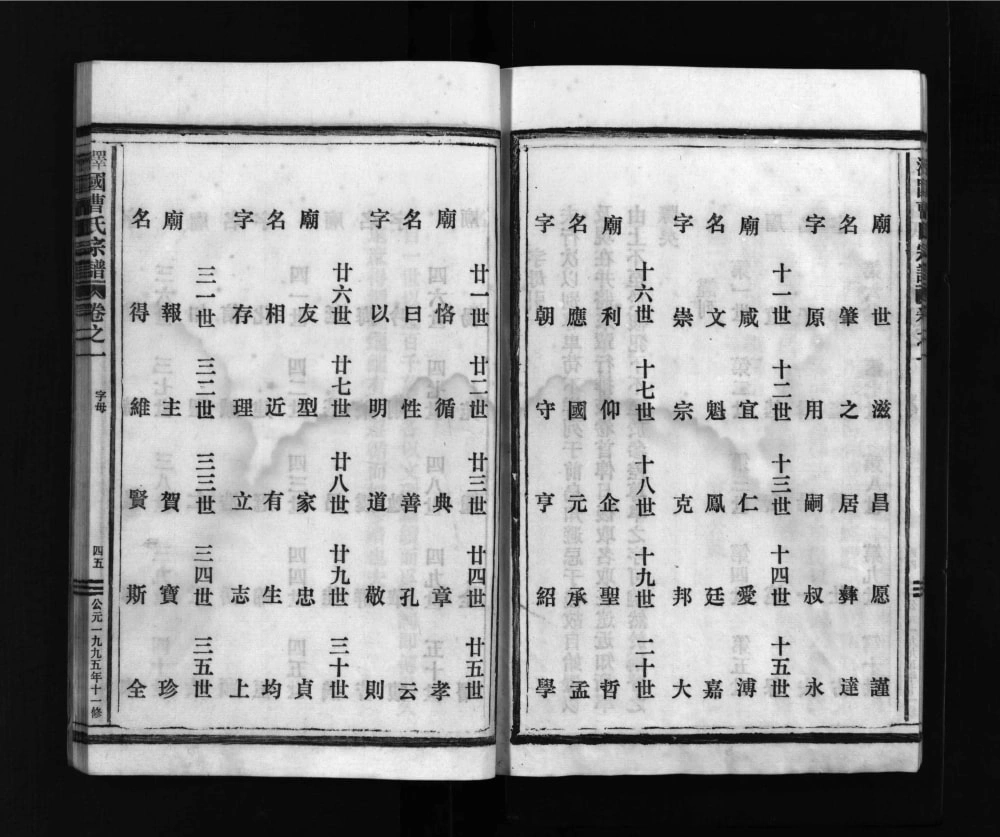 廟 世 滋 昌 愿 謹
名 肇 之 居 彝 達
字 原 用 嗣 叔 永
十一世 十二世 十三世 十四世 十五世
廟 咸 宜 仁 愛 溥
名 文 魁 鳳 廷 嘉
字 崇 宗 克 邦 大
十六世 十七世 十八世 十九世 二十世
廟 利 仰 企 聖 哲
名 應 國 元 承 孟
字 朝 守 亨 紹 學
廿一世 廿二世 廿三世 廿四世 廿五世
廟 恪 循 典 章 孝
名 曰 性 善 孔 云
字 以 明 道 敬 則
廿六世 廿七世 廿八世 廿九世 三十世
廟 友 型 家 忠 貞
名 相 近 有 生 均
字 存 理 立 志 上
三一世 三二世 三三世 三四世 三五世
廟 報 主 賀 寶 珍
名 得 維 賢 斯 全
澤國曹氏宗譜 卷之一 字母 四五 公元一九九五年十一修